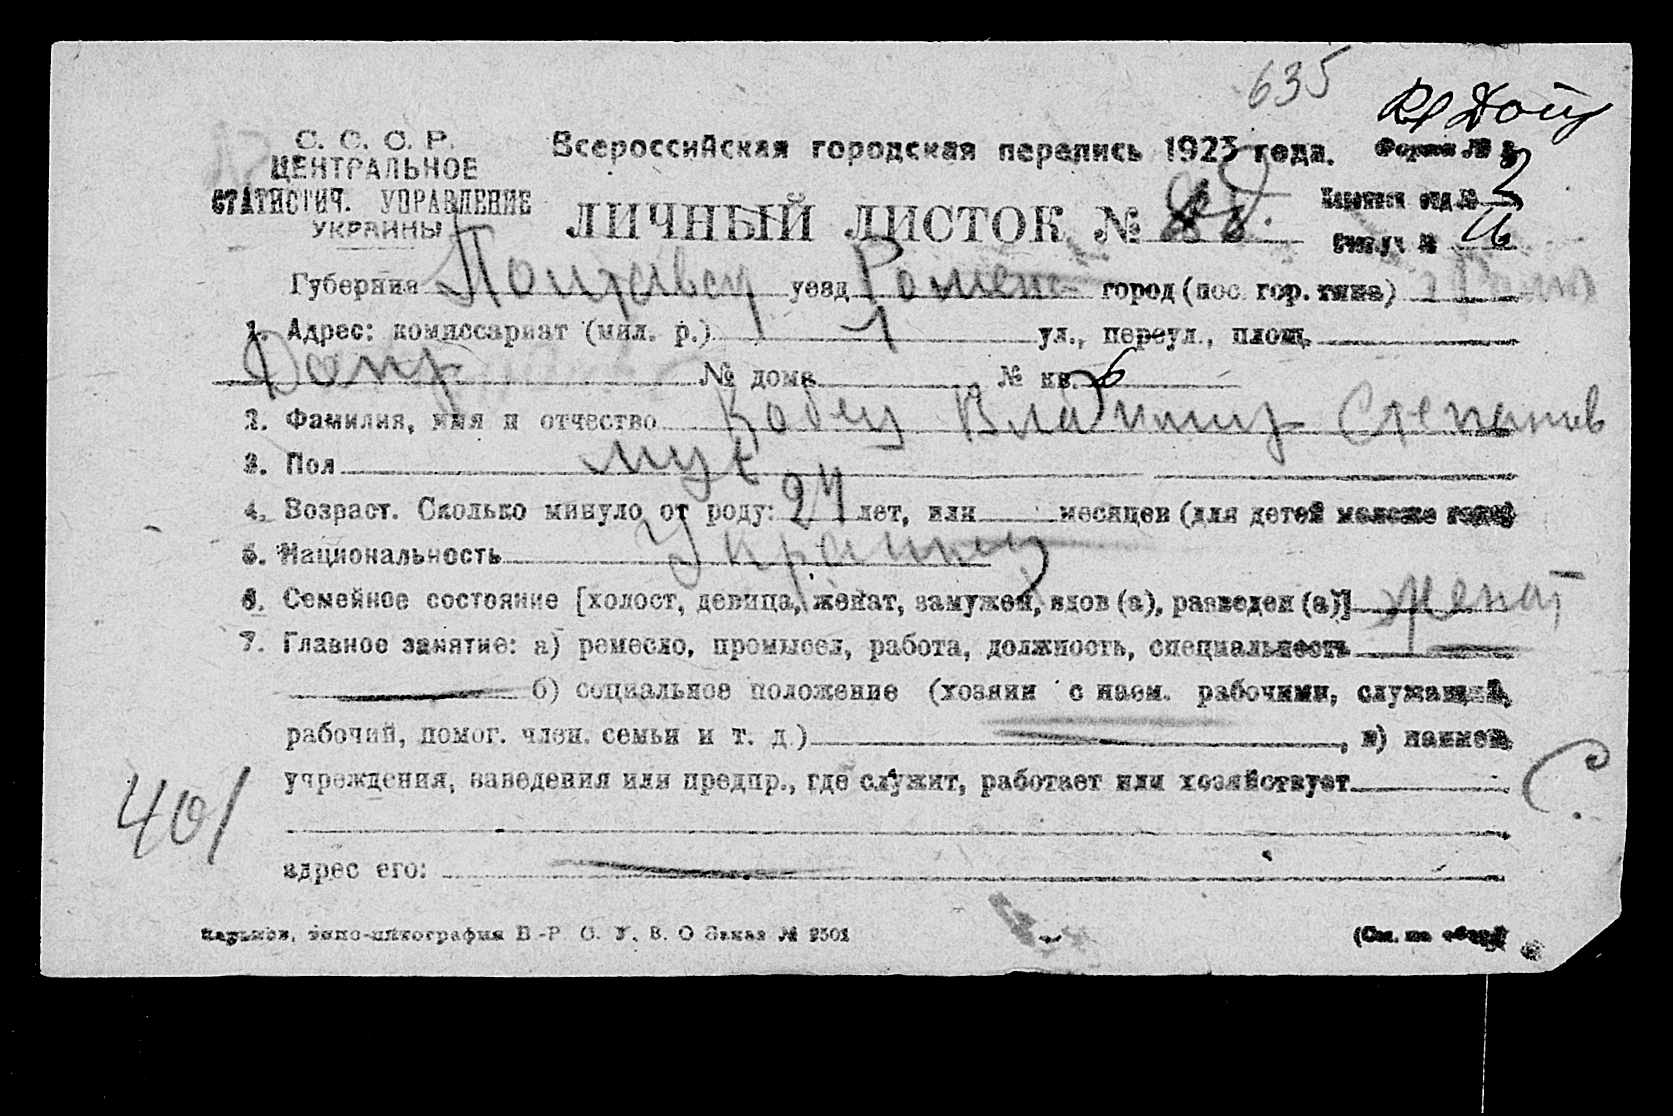 635
С. С. С. Р.
ЦЕНТРАЛЬНОЕ
СТАТИСТИЧ. УПРАВЛЕНИЕ
УКРАИНЫ
Всероссийская городская перепись 1923 года.
Форма № 2
ЛИЧНЫЙ ЛИСТОК №
отд. №
Счет. уч. №
Губерния Полтавск уезд Ромен город (пос. гор. типа)
1. Адрес: комиссариат (мил. р.) 1 ул., переул., площ.
Допр № дома № кв. 6
2. Фамилия, имя и отчество Кобец Владимир Степанов
3. Пол муж
4. Возраст. Сколько минуло от роду: 24 лет, или месяцев (для детей моложе года)
5. Национальность Украинец
6. Семейное состояние [холост, девица, женат, замужем, вдов (а), разведен (а)] женат
7. Главное занятие: а) ремесло, промысел, работа, должность, специальность
б) социальное положение (хозяин с наем. рабочими, служащий,
рабочий, помог. член. семьи и т. д.) , в) наимен.
учреждения, заведения или предпр., где служит, работает или хозяйствует
401
С.
адрес его:
Харьков, типо-цинкография В.-Р. С. У. В. О Заказ № 2501
(См. на обор.)